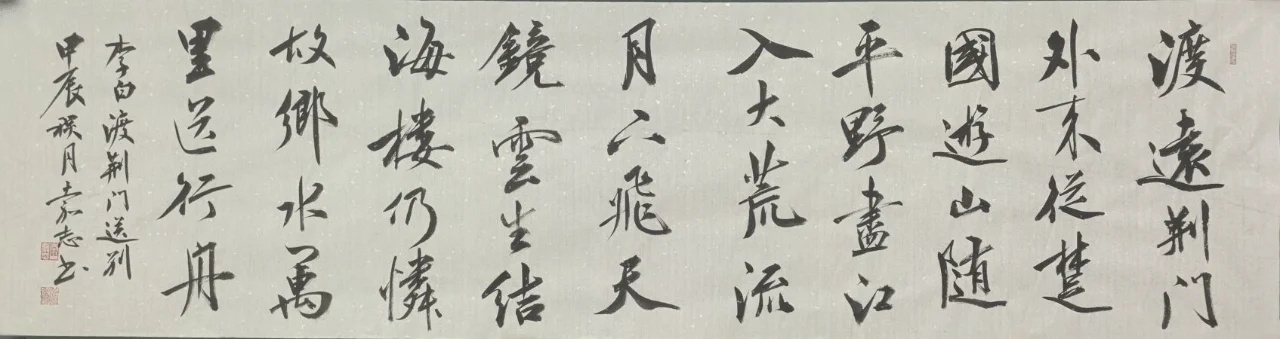 渡遠荆门
外来從楚
國遊山随
平野盡江
入大荒流
月下飛天
鏡雲生结
海楼仍憐
故鄉水萬
里送行舟
李白渡荆门送别
甲辰月嘉志书